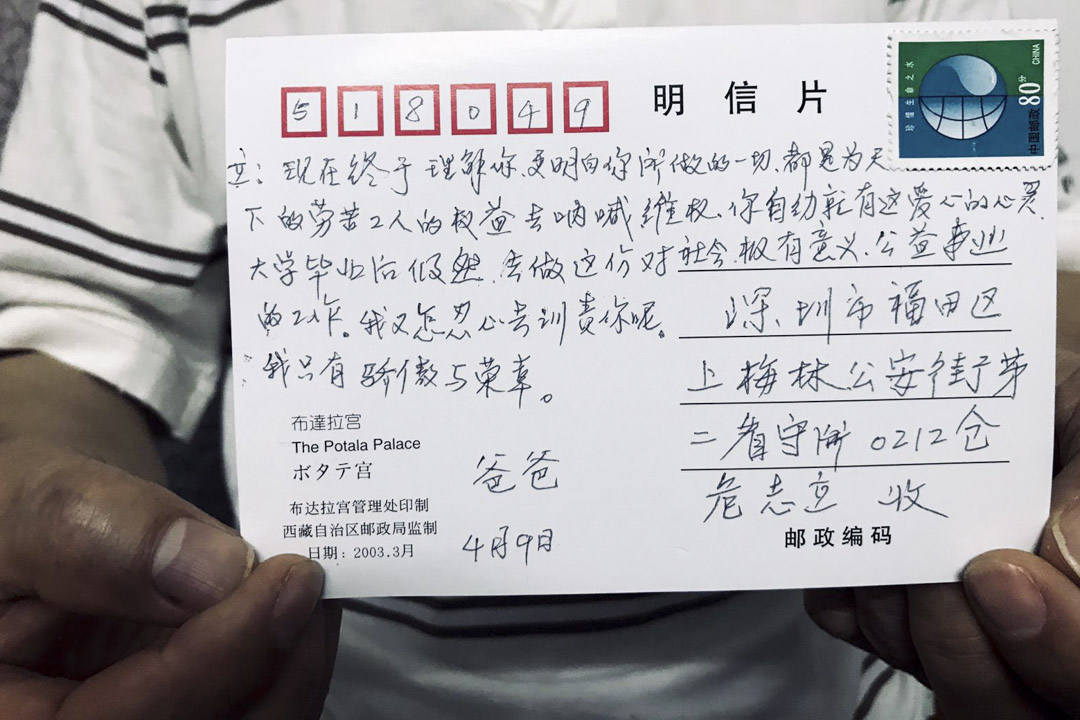 518049
明信片
珍惜生命之水
中国邮政
80分
CHINA
立：现在终于理解你、更明白你所做的一切、都是为天
下的劳苦工人的权益去呐喊维权、你自幼就有这爱心的心灵、
大学毕业后依然、去做这份对社会、极有意义、公益事业
的工作。我又怎忍心去训责你呢。
我只有骄傲与荣幸。
爸爸
4月9日
深圳市福田区
上梅林公安街第
二看守所 0212仓
危志立 收
邮政编码
布達拉宫
The Potala Palace
ポタテ宮
布达拉宫管理处印制
西藏自治区邮政局监制
日期：2003.3月